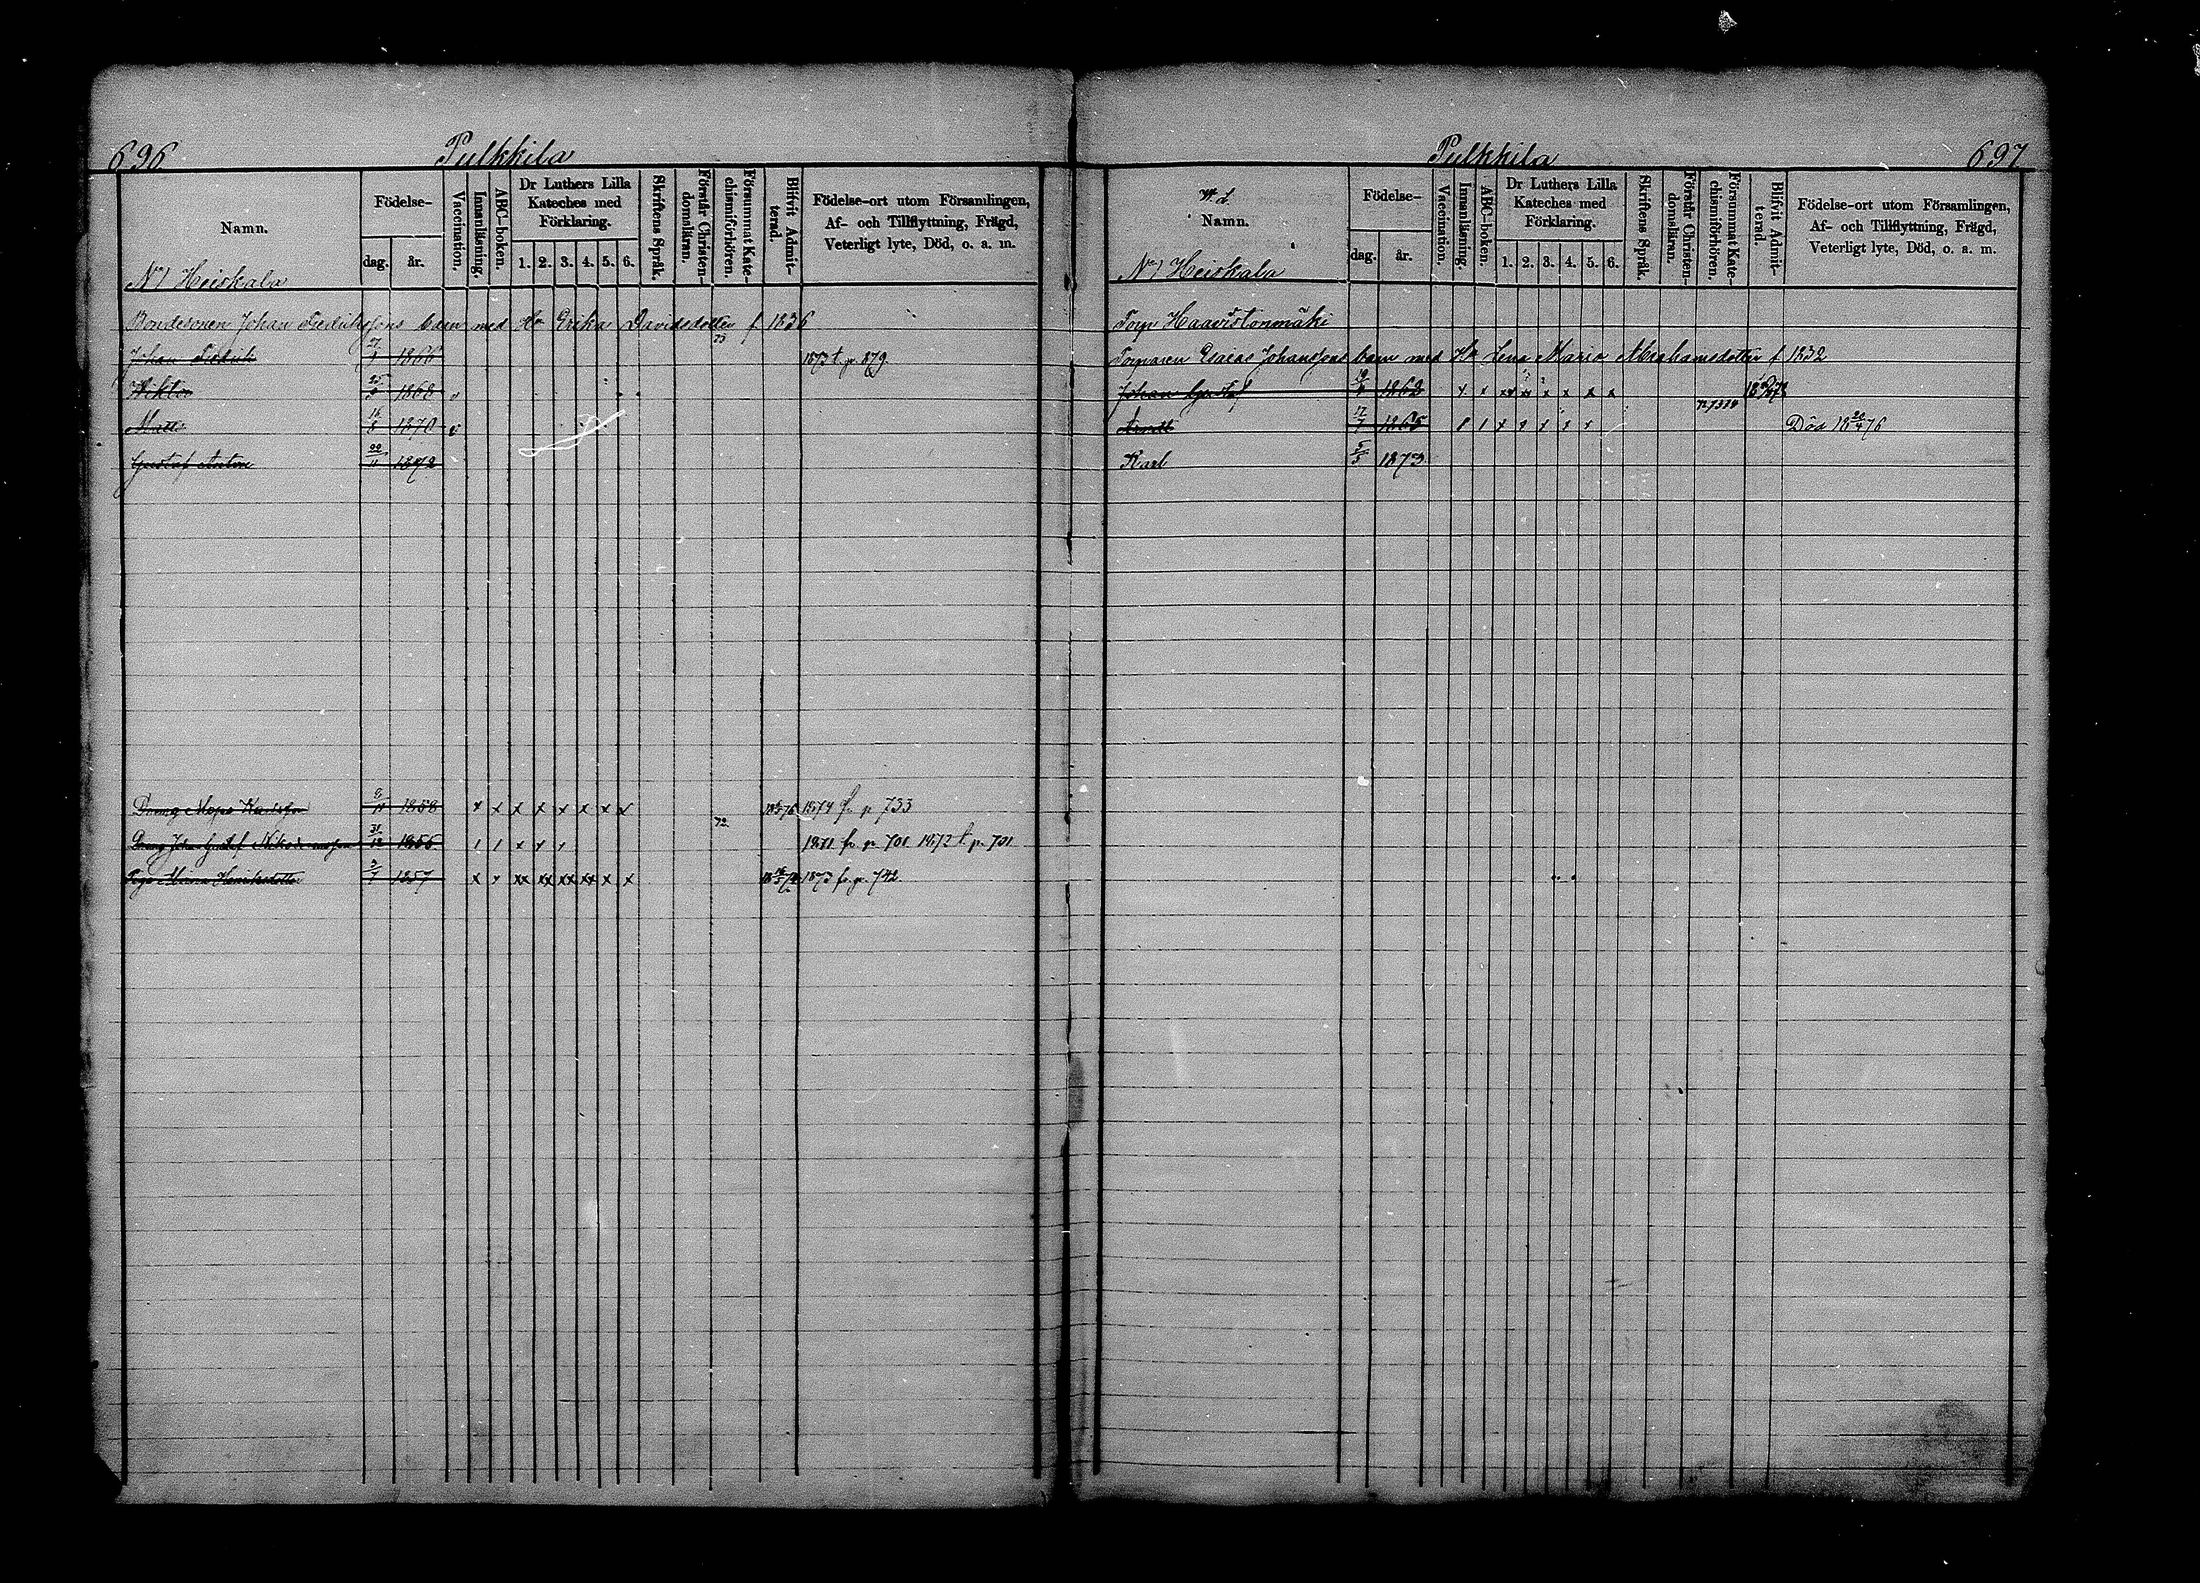 696. Pulkkila
Namn.
Födelse-
dag. år.
Vaccination.
Innanläsning.
ABC-boken.
Dr Luthers Lilla Kateches med Förklaring.
1. 2. 3. 4. 5. 6.
Skriftens Språk.
Förstår Christendomsläran.
Försummat Katechismiförhören.
Blifvit Admitterad.
Födelse-ort utom Församlingen, Af- och Tillflyttning, Frägd, Veterligt lyte, Död, o. a. m.
N:o 1 Heiskala
Bondesonen Johan Fredrikssons barn med Ho Erika Davidsdotter f 1836
Johan Fredrik 27/1 1866 73 1873 t. p. 879.
Wiktor 25/5 1868 v
Matts 16/8 1870 v
Gustaf Anton 22/11 1872
Dreng Mapo Karlsson 8/11 1858 x x x x x x x x 1874 fr. p. 733
Dreng Johan Gustaf Nikodemusson 31/12 1855 1 1 x x x 72. 1871 fr. p. 701 1872 t. p. 701
Piga Henriksdotter 3/7 1857 x x xx xx xx xx x x 1873 fr. p. 742.
Pulkkila 697
Namn.
Födelse-
dag. år.
Vaccination.
Innanläsning.
ABC-boken.
Dr Luthers Lilla Kateches med Förklaring.
1. 2. 3. 4. 5. 6.
Skriftens Språk.
Förstår Christendomsläran.
Försummat Katechismiförhören.
Blifvit Admitterad.
Födelse-ort utom Församlingen, Af- och Tillflyttning, Frägd, Veterligt lyte, Död, o. a. m.
N:o 1 Heiskala
Torp Haavistonmäki
Torparen Esaias Johanssons barn med Ho Lena Maria Abrahamsdotter f 1832
Johan Gustaf 1862 x x xx xx x x x x
17/7 1865 Död 18 20/4 76
Karl 5/5 1873